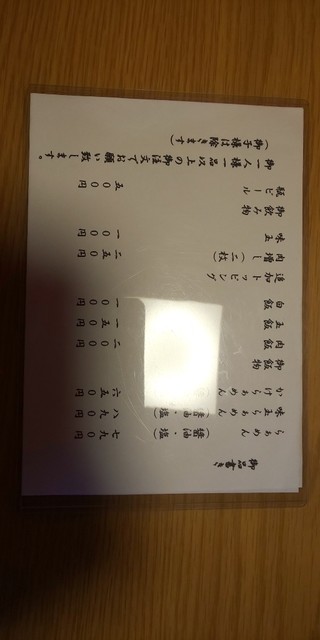 御品書き
らぁめん（醤油・塩）七九〇円
味玉らぁめん（醤油・塩）八九〇円
かけらぁめん 六五〇円
御飯物
肉飯 二〇〇円
玉飯 一五〇円
白飯 一〇〇円
追加トッピング
肉増し（二枚）二五〇円
味玉 一〇〇円
御飲み物
瓶ビール 五〇〇円
御一人様一品以上の御注文でお願い致します。
（御子様は除きます）